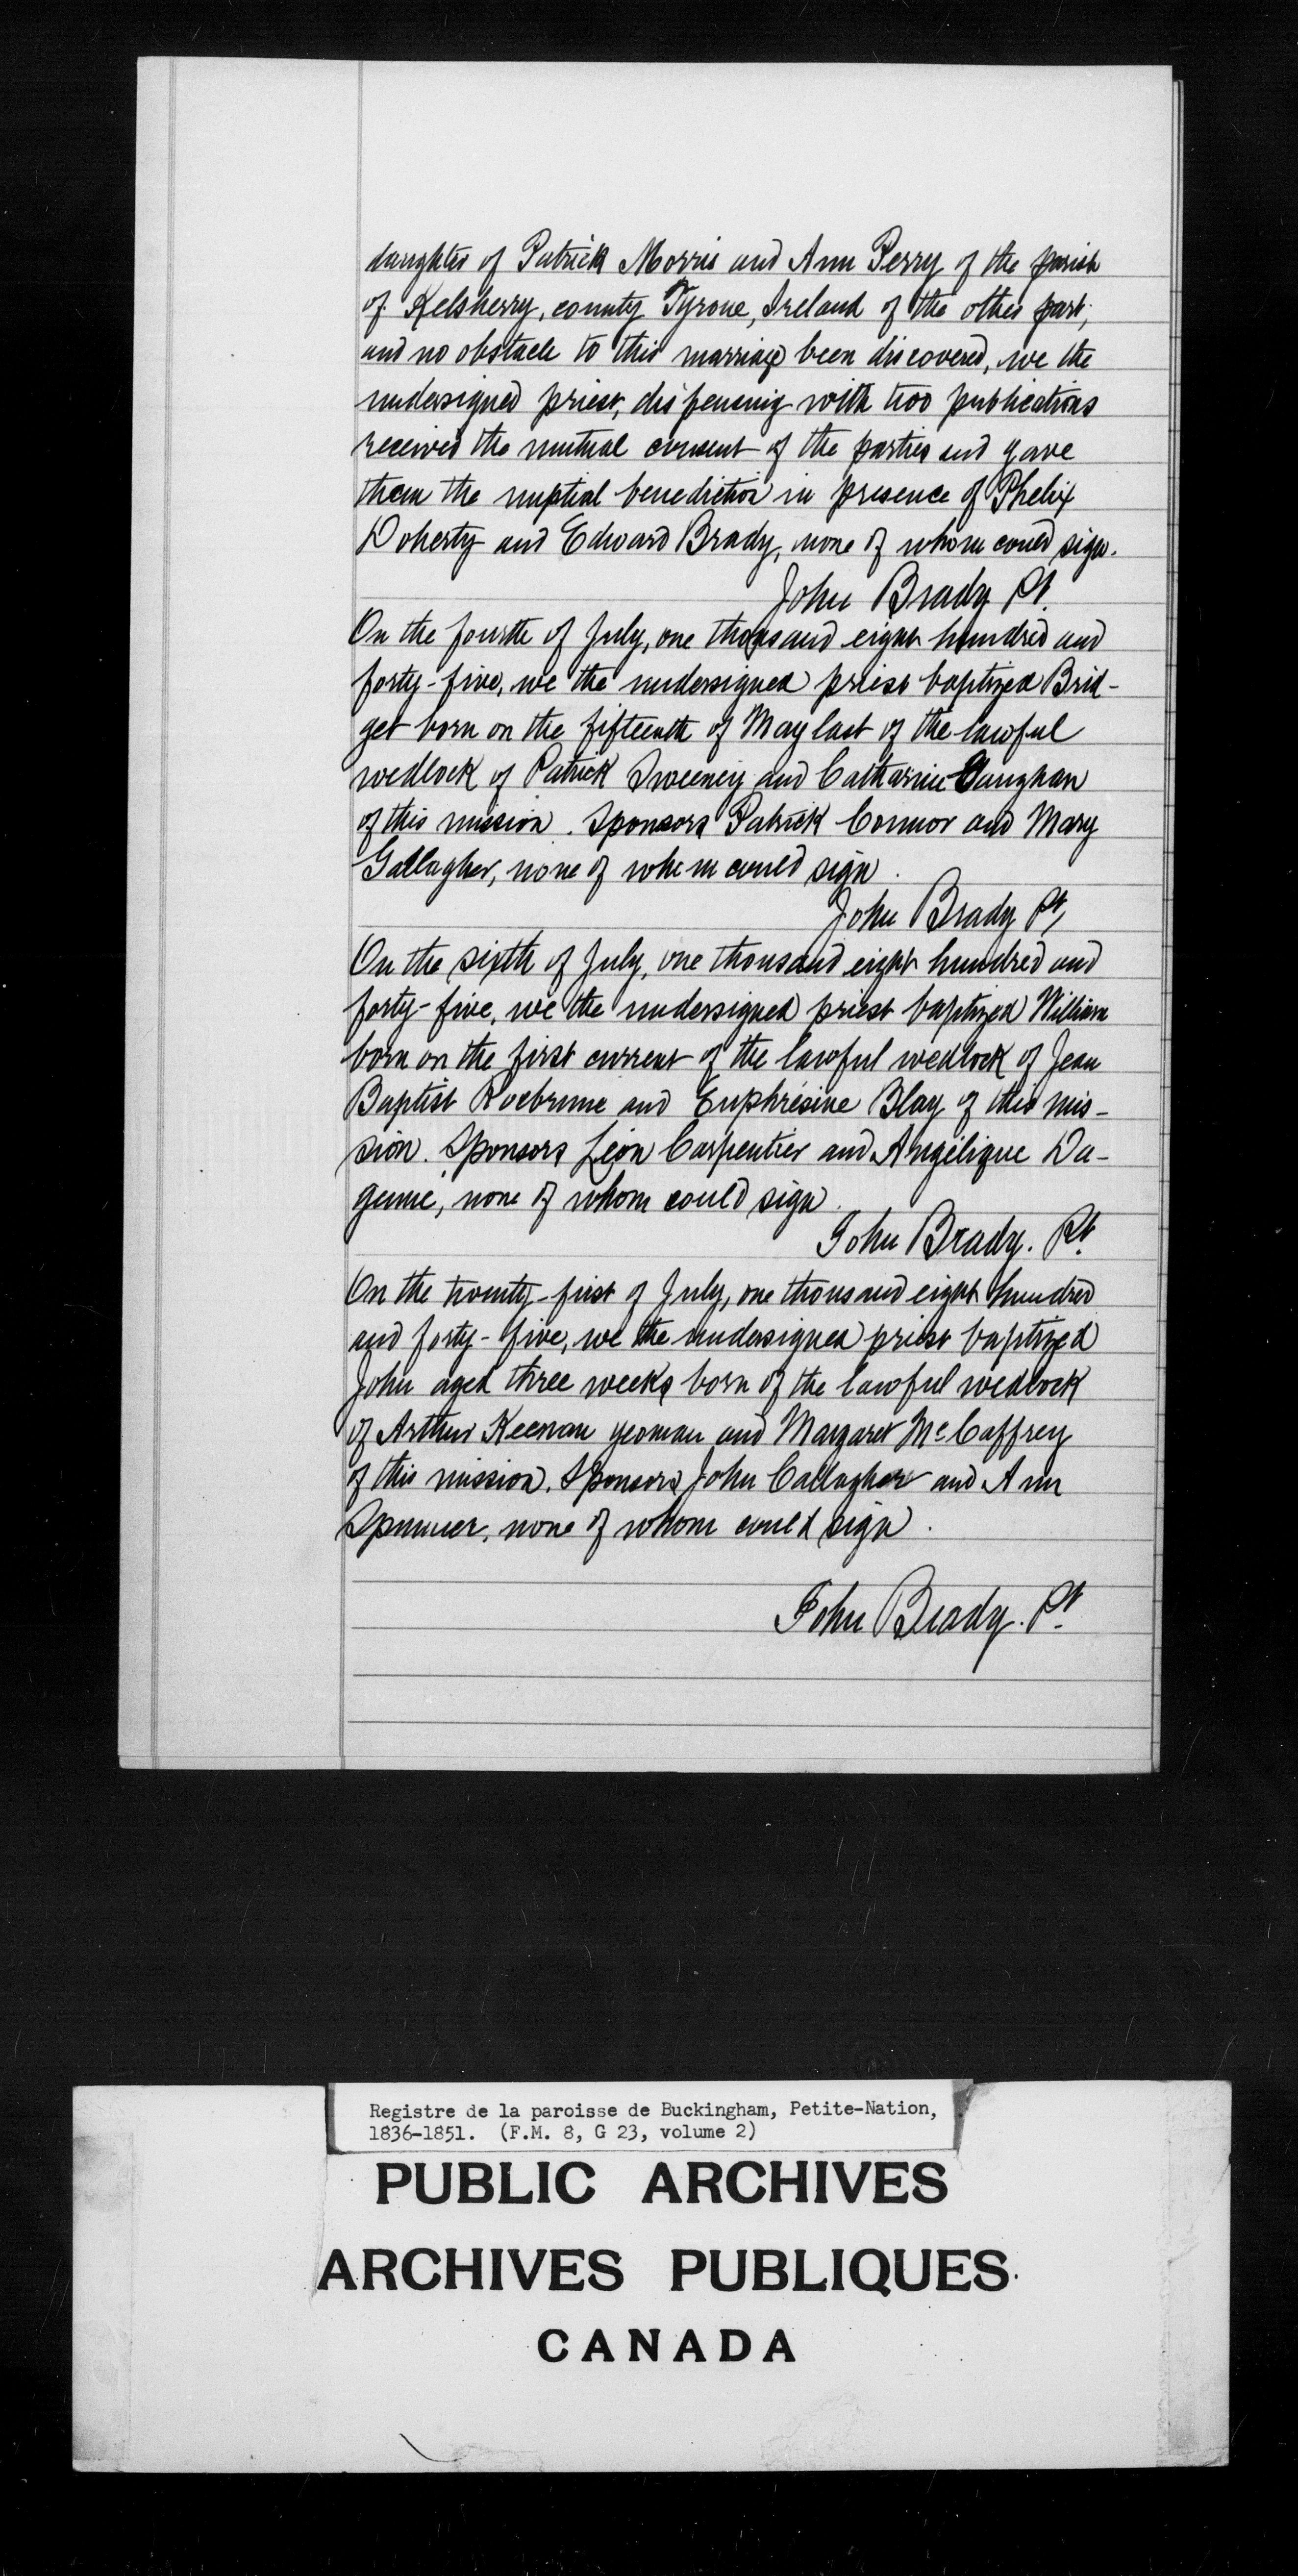 daughter of Patrick Morris and Ann Perry of the parish
of Kelsherry, county Tyrone, Ireland of the other part;
and no obstacle to this marriage been discovered, we the
undersigned priest, dispensing with two publications
received the mutual consent of the parties and gave
them the nuptial benediction in presence of Phelix
Doherty and Edward Brady, none of whom could sign.
John Brady Pt.
On the fourth of July, one thousand eight hundred and
forty-five, we the undersigned priest baptized Brid-
get born on the fifteenth of May last of the lawful
wedlock of Patrick Sweeney and Catharine Vaughan
of this mission. Sponsors Patrick Connor and Mary
Gallagher, none of whom could sign.
John Brady Pt,
On the sixth of July, one thousand eight hundred and
forty-five, we the undersigned priest baptized William
born on the first current of the lawful wedlock of Jean
Baptist Rocbrune and Euphrésine Blay of this mis-
sion. Sponsors Léon Carpentier and Angélique Da-
genné, none of whom could sign.
John Brady. Pt.
On the twenty-first of July, one thousand eight hundred
and forty-five, we the undersigned priest baptized
John aged three weeks born of the lawful wedlock
of Arthur Keenan yeoman and Margaret McCaffrey
of this mission. Sponsors John Callagher and Ann
none of whom could sign.
John Brady. Pt.
Registre de la paroisse de Buckingham, Petite-Nation,
1836-1851. (F.M. 8, G 23, volume 2)
PUBLIC ARCHIVES
ARCHIVES PUBLIQUES
CANADA